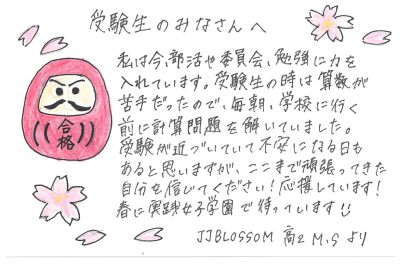 受験生のみなさんへ
私は今、部活や委員会、勉強に力を
入れています。受験生の時は算数が
苦手だったので、毎朝、学校に行く
前に計算問題を解いていました。
受験が近づいていて不安になる日も
あると思いますが、ここまで頑張ってきた
自分を信じてください!応援しています!
春に実践女子学園で待っています!!
JJBLOSSOM 高2 M.S より
合格